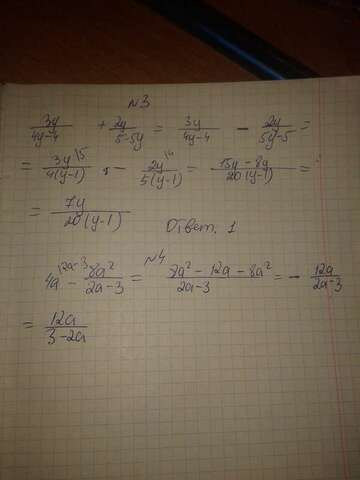 N3
3y/(4y-4) + 2y/(5-5y) = 3y/(4y-4) - 2y/(5y-5) =
= 3y\5/(4(y-1)) - 2y\4/(5(y-1)) = (15y-8y)/(20(y-1)) =
= 7y/(20(y-1)) Ответ. 1
N4
4a - 8a²/(2a-3) = (8a² - 12a - 8a²)/(2a-3) = - 12a/(2a-3)
= 12a/(3-2a)